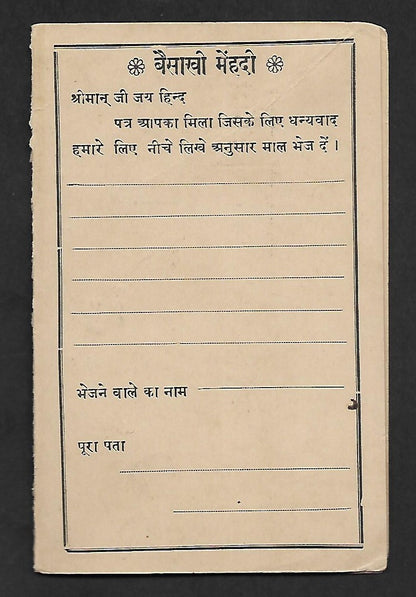 वैसाखी मेंहदी
श्रीमान् जी जय हिन्द
पत्र आपका मिला जिसके लिए धन्यवाद
हमारे लिए नीचे लिखे अनुसार माल भेज दें ।
भेजने वाले का नाम
पूरा पता